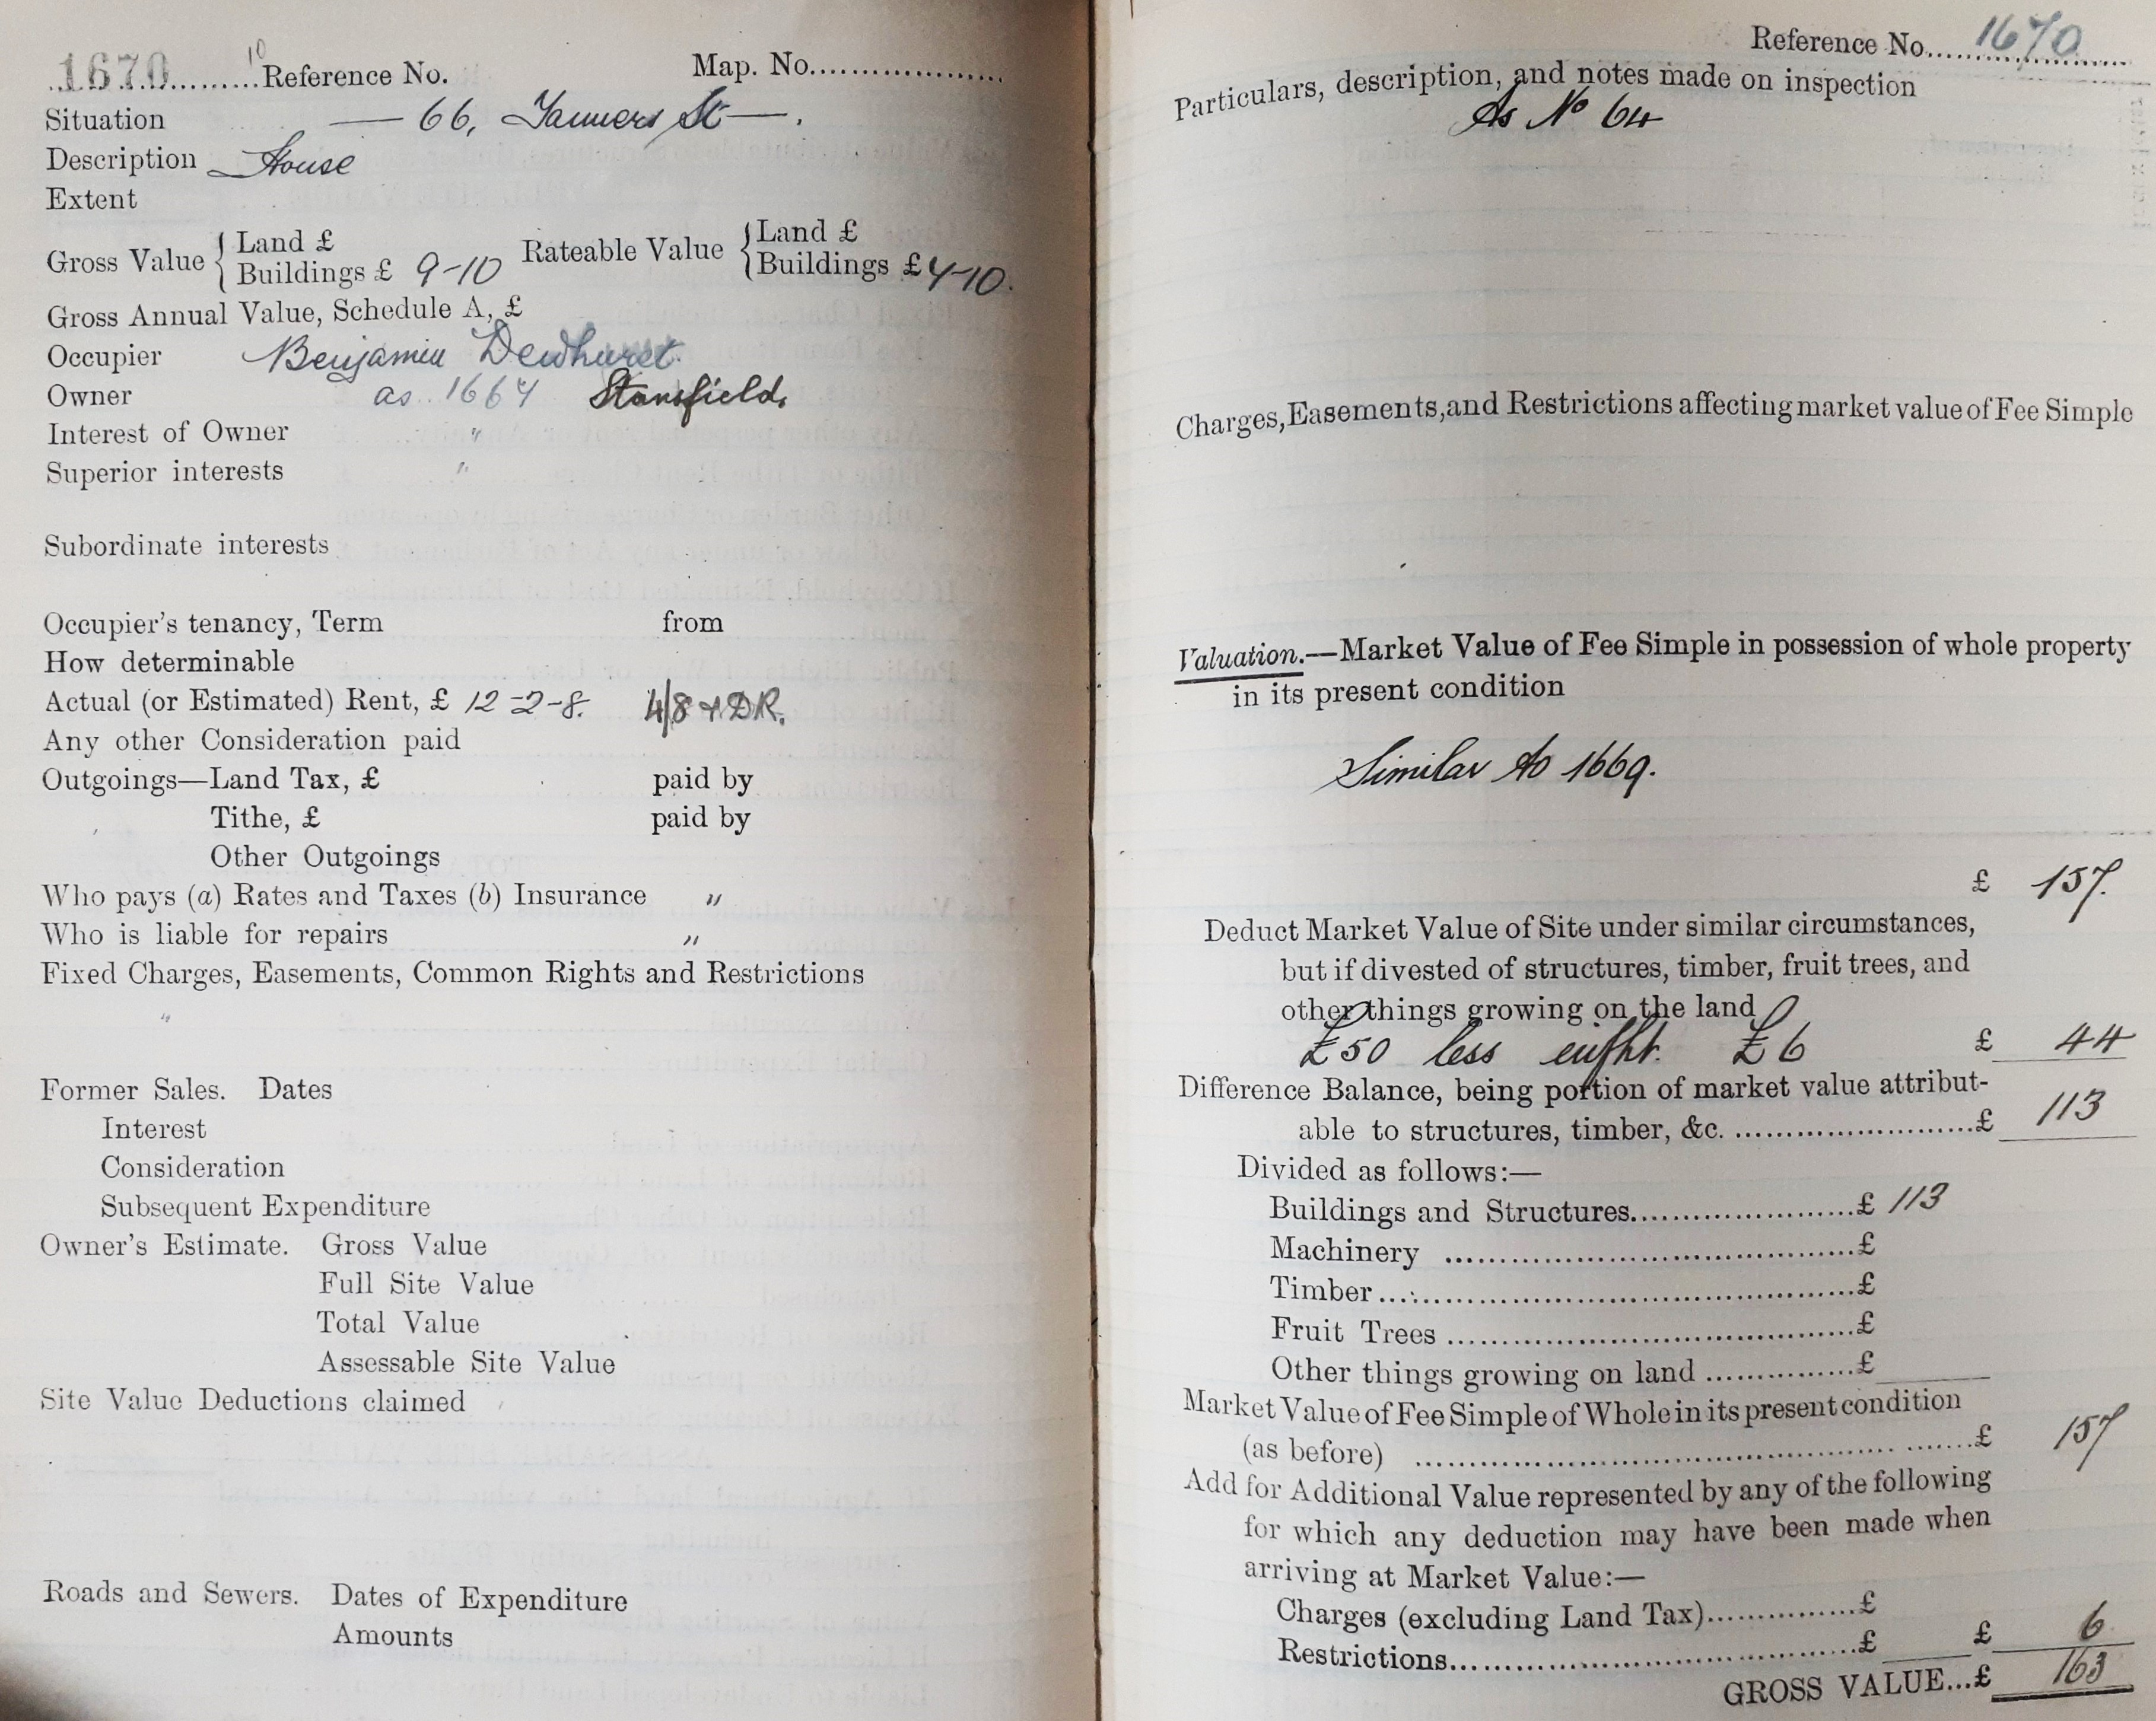 1670 10 Reference No. Map. No.
Situation — 66, Tanners St —.
Description House
Extent
Gross Value { Land £ Rateable Value { Land £
Buildings £ 9-10 Buildings £ 7-10.
Gross Annual Value, Schedule A, £
Occupier Benjamin Dewhurst.
Owner as 1664 Stansfield.
Interest of Owner "
Superior interests "
Subordinate interests
Occupier's tenancy, Term from
How determinable
Actual (or Estimated) Rent, £ 12-2-8. 4/8 + DR.
Any other Consideration paid
Outgoings—Land Tax, £ paid by
Tithe, £ paid by
Other Outgoings
Who pays (a) Rates and Taxes (b) Insurance "
Who is liable for repairs "
Fixed Charges, Easements, Common Rights and Restrictions
"
Former Sales. Dates
Interest
Consideration
Subsequent Expenditure
Owner's Estimate. Gross Value
Full Site Value
Total Value
Assessable Site Value
Site Value Deductions claimed
Roads and Sewers. Dates of Expenditure
Amounts
Reference No. 1670
Particulars, description, and notes made on inspection
As No 64
Charges, Easements, and Restrictions affecting market value of Fee Simple
Valuation.—Market Value of Fee Simple in possession of whole property
in its present condition
Similar to 1669.
£ 157.
Deduct Market Value of Site under similar circumstances,
but if divested of structures, timber, fruit trees, and
other things growing on the land
£50 less £6 £ 44
Difference Balance, being portion of market value attribut-
able to structures, timber, &c. £ 113
Divided as follows:—
Buildings and Structures £ 113
Machinery £
Timber £
Fruit Trees £
Other things growing on land £
Market Value of Fee Simple of Whole in its present condition
(as before) £ 157
Add for Additional Value represented by any of the following
for which any deduction may have been made when
arriving at Market Value:—
Charges (excluding Land Tax) £
Restrictions £ £ 6
GROSS VALUE...£ 163